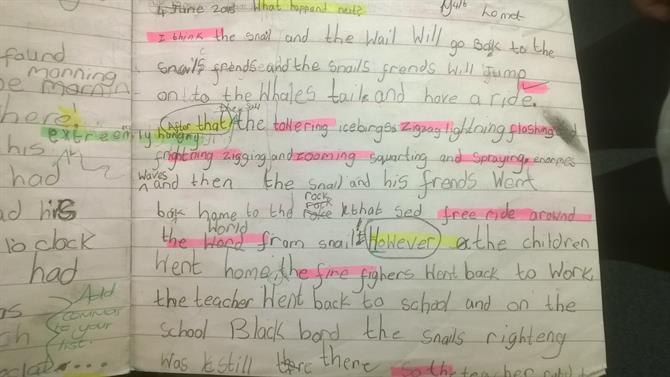 4 June What happend next?
I think the snail and the Wail Will go back to the
snails frends and the snails frends will jump
on to the Whales taile and have a ride.
After that they saw the towering icebirges zigzag lightning flashing
frightning zigging and zooming squarting and spraying. enormes
waves and then the snail and his frends Went
back home to the rock that sed free ride around
the World from snail However the children
Went home, the fire fighers Went back to Work,
the teacher Went back to school and on the
school Black bord the snails righteng
was still there so the teacher
found
morning
here!
extreemly hungry
his
had
his
o clock
had
Add
commas
to your
list.